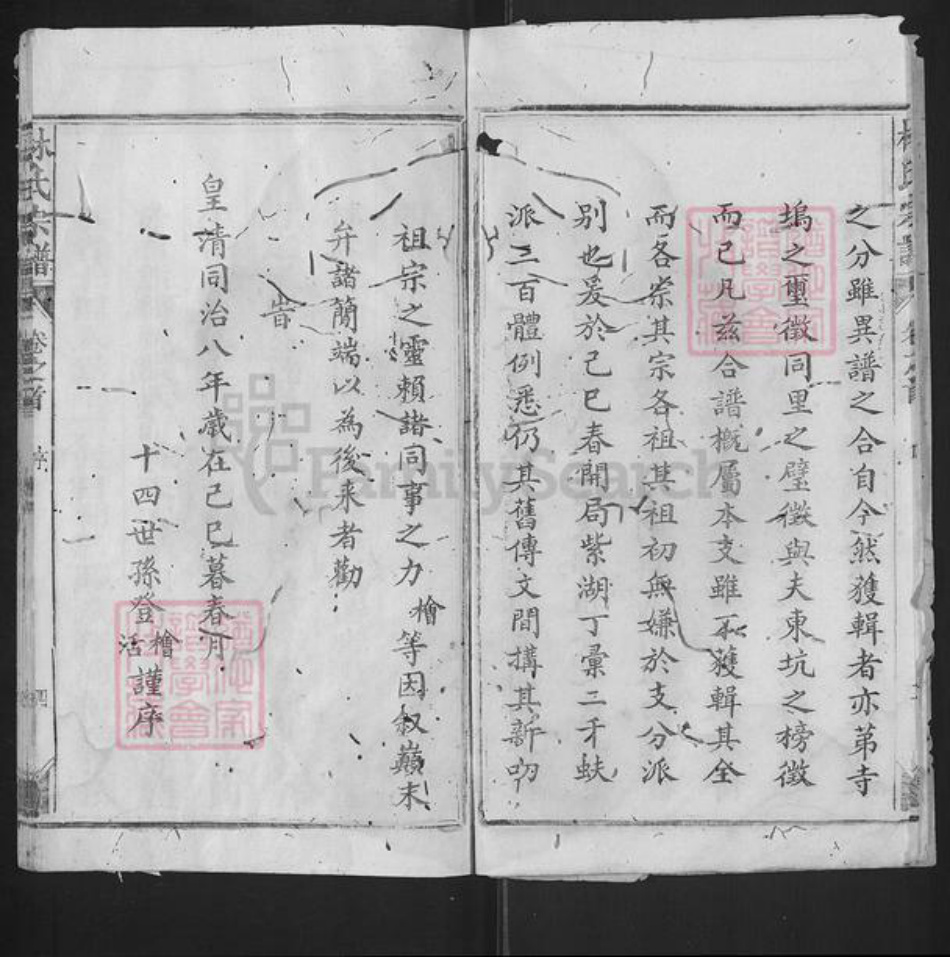 之分雖異譜之合自今然獲輯者亦第寺
塢之璽徵同里之璧徵與夫東坑之榜徵
而已凡茲合譜概屬本支雖不獲輯其全
而各崇其宗各祖其祖初無嫌於支分派
別也爰於己巳春開局紫湖丁彙二牙蚨
派三百體例悉仍其舊傳文間搆其新叨
祖宗之靈賴諸同事之力檜等因敘巔末
弁諸簡端以為後來者勸
時
皇清同治八年歲在己巳暮春月
十四世孫登檜活謹序
林氏宗譜
卷之首
序
四
FamilySearch